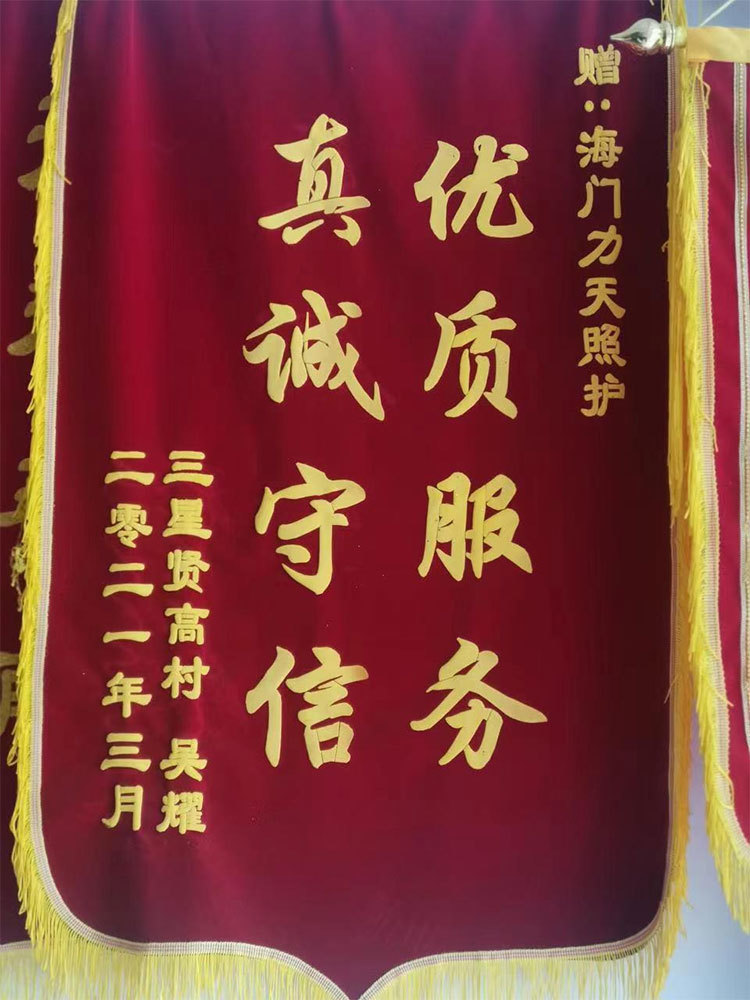 赠:海门力天照护
优质服务
真诚守信
三星贤高村 吴耀
二零二一年三月